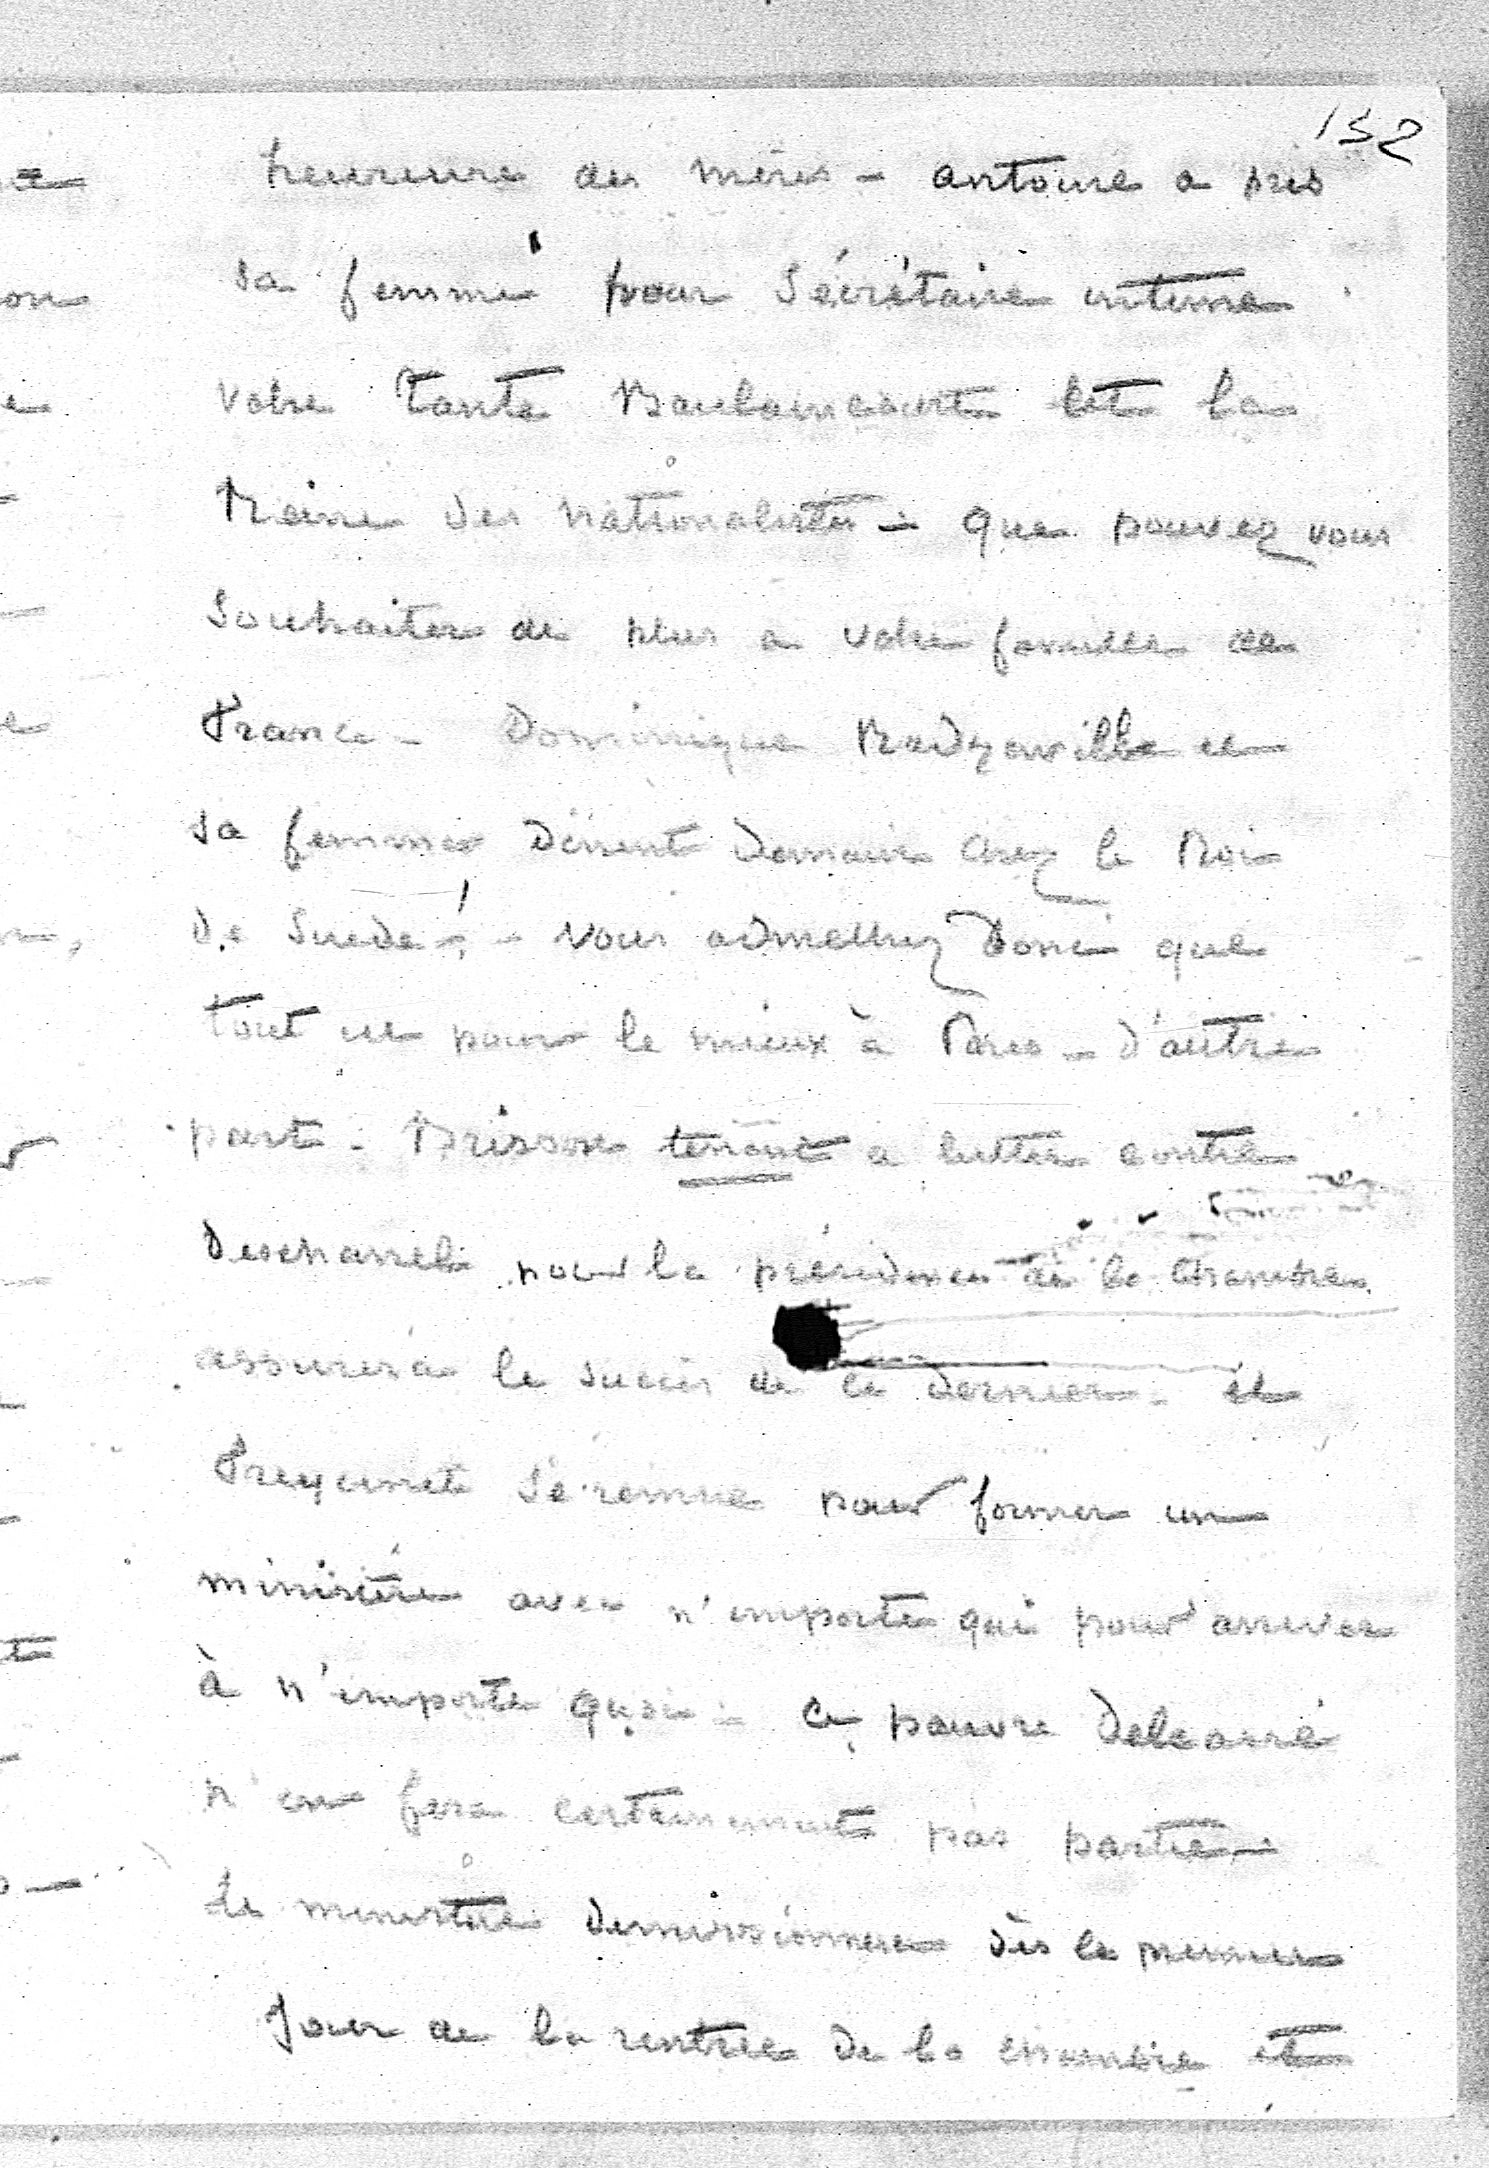 132
heureuse des mères - antoine a pris
sa femme pour Sécrétaire intime
votre tante Beaulaincourt est la
Reine des nationalistes - que pouvez vous
Souhaiter de plus a votre famille de
France - Dominique Radzowille et
sa femme dinent demain chez le Roi
de Suede ! - vous admettrez donc que
tout est pour le mieux à Paris - d'autre
part - Brisson tenant a lutter contre
Deschanel pour la présidence de la Chambre
assurera le succès de ce dernier - et
Freycinet se remue pour former un
ministère avec n'importe qui pour arriver
à n'importe quoi - Ce pauvre Delcassé
n'en fera certainement pas partie -
Le ministère demissionnera dès le premier
Jour de la rentrée de la chambre et